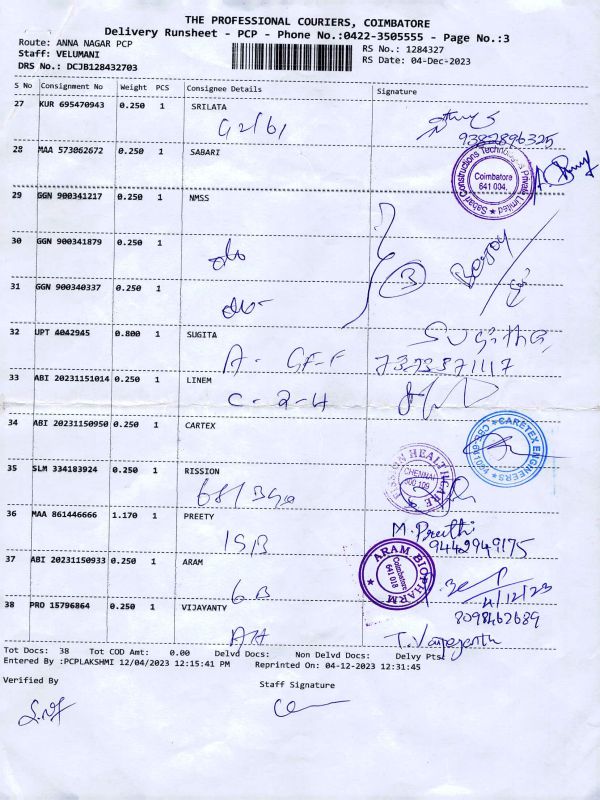 THE PROFESSIONAL COURIERS, COIMBATORE
Delivery Runsheet - PCP - Phone No.:0422-3505555 - Page No.:3
Route: ANNA NAGAR PCP
Staff: VELUMANI
DRS No.: DCJB128432703
RS No.: 1284327
RS Date: 04-Dec-2023
S No Consignment No Weight PCS Consignee Details Signature
27 KUR 695470943 0.250 1 SRILATA
G2/61
9382896325
28 MAA 573062672 0.250 1 SABARI
Sabari Constructions Technologies Private Limited
Coimbatore
641 004.
29 GGN 900341217 0.250 1 NMSS
30 GGN 900341879 0.250 1
do
3
31 GGN 900340337 0.250 1
do
32 UPT 4042945 0.800 1 SUGITA
Sugitha
A - GF-F
7373371117
33 ABI 20231151014 0.250 1 LINEM
C - 2-4
34 ABI 20231150950 0.250 1 CARTEX
CARETEX ENGINEERS
35 SLM 334183924 0.250 1 RISSION
HEALTHCARE
CHENNAI
36 MAA 861446666 1.170 1 PREETY
M. Preethi
15B
9442949175
37 ABI 20231150933 0.250 1 ARAM
ARAM BIOPHARM
Coimbatore
641 018
6B
4/12/23
8098462689
38 PRO 15796864 0.250 1 VIJAYANTY
AH
Tot Docs: 38 Tot COD Amt: 0.00 Delvd Docs: Non Delvd Docs: Delvy Pts:
Entered By :PCPLAKSHMI 12/04/2023 12:15:41 PM Reprinted On: 04-12-2023 12:31:45
Verified By
Staff Signature